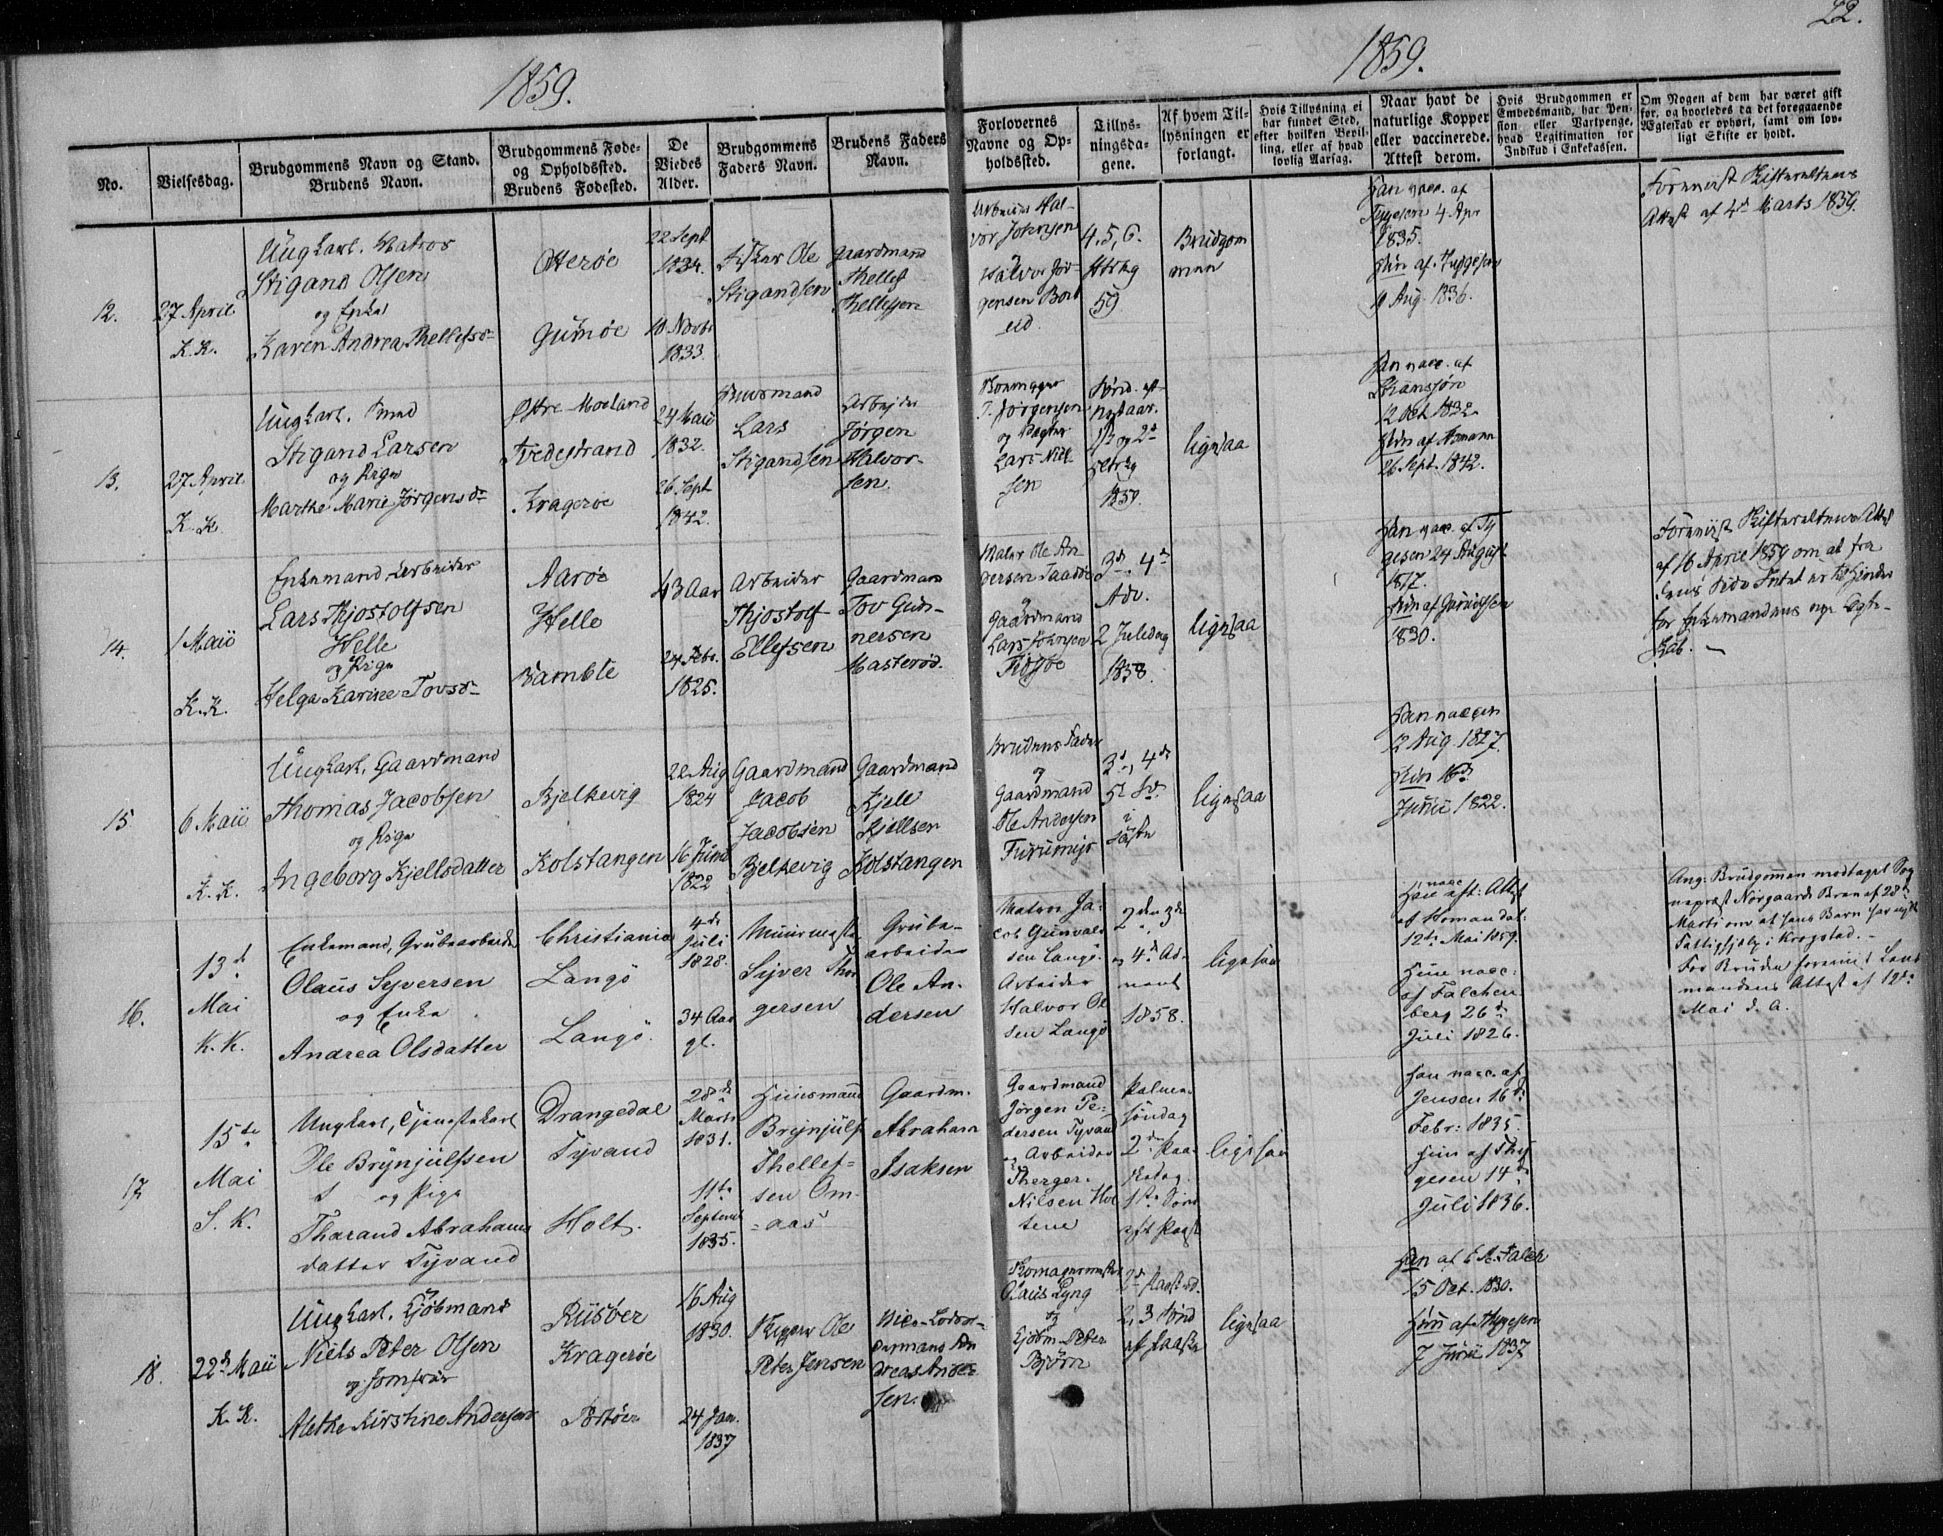 22.
1859.
1859.
No.
Vielsesdag.
Brudgommens Navn og Stand.
Brudens Navn.
Brudgommens Føde-
og Opholdssted.
Brudens Fødested.
De
Viedes
Alder.
Brudgommens
Faders Navn.
Brudens Faders
Navn.
Forlovernes
Navne og Op-
holdssted.
Tillys-
ningsda-
gene.
Af hvem Til-
lysningen er
forlangt.
Hvis Tillysning ei
har fundet Sted,
efter hvilken Bevil-
ling, eller af hvad
lovlig Aarsag.
Naar havt de
naturlige Kopper
eller vaccinerede.
Attest derom.
Hvis Brudgommen er
Embedsmand, har Pen-
sion eller Vartpenge,
hvad Legitimation for
Indskud i Enkekassen.
Om Nogen af dem har været gift
før, og hvorledes da det foregaaende
Ægteskab er ophørt, samt om lov-
ligt Skifte er holdt.
12.
27 April
K. K.
Ungkarl. Matros
Stigand Olsen
og Enke
Karen Andrea Thellefsd
Otterøe
Gumøe
22 Sept
1834.
10 Novbr
1833.
Fisker Ole
Stigandsen
Gaardmand
Thellef
Thellefsen
Arbeider Hal-
vor Johnsen
Halvor Jør-
gensen
4, 5, 6.
59
Brudgom
men
Han vacc. af
Tygesen 4 Apr
1835.
Hun af Tygesen
9 Aug. 1836.
Foreviist Skifterettens
Attest af 4de Marts 1859.
13.
27 April
K. K.
Ungkarl.
Stigand Larsen
og Pige
Marthe Marie Jørgensd
Østre Moeland
Tvedestrand
Kragerøe
24 Maii
1832.
26 Sept
1842.
Huusmand
Lars
Stigandsen
Arbeider
Jørgen
Halvor-
sen.
Jørgensen
og
Lars Niel-
sen
Sønd. eft
Nytaar.
1ste og 2d
1859.
ligesaa
Han vacc. af
12 Oct 1832
Hun af Homann
26 Sept. 1842.
14.
1 Maii
K. K.
Enkemand Arbeider
Lars Thjostolfsen
Helle
og Pige
Helga Karine Tovsd
Aarøe
Helle
Bamble
43 Aar
24 Febr.
1825.
Arbeider
Thjostolf
Ellefsen
Gaardmand
Tov Gun-
nersen
Masterød.
Ole An-
dersen
og
Gaardmand
Lars Johnsen
3d, 4d
Adv.
2 Juledag
1858.
ligesaa
Han vacc. af Ty
gesen 24 August
1817.
Hun af Gunulfsen
1830.
Foreviist Skifterettens Attest
af 16 April 1859 om at fra
dens Side Intet er til Hinder
for Enkemandens nye Ægte-
skab.
15
6 Maii
K. K.
Ungkarl, Gaardmand
Thomas Jacobsen
og Pige
Ingeborg Kjellsdatter
Bjelkevig
Kolstangen
22 Aug
1824
16 Juni
1822
Gaardmand
Jacob
Jacobsen
Bjelkevig
Gaardmand
Kjell
Kjellsen
Kolstangen
Brudens Fader
og
Gaardmand
Ole Andersen
3d, 4de
5t Sd.
i
Faste
ligesaa
Han vaccin
12 Aug. 1827.
Hun 16d
Junii 1822.
16.
13d
Mai
K. K.
Enkemand, Grubearbeider
Olaus Syversen
og Enke
Andrea Olsdatter
Christiania
Langö
Langö.
4de
Juli
1828.
34 Aar
gl.
Muurmester
Syver Thor
gersen
Grube-
arbeider
Ole An-
dersen
Matros Ja-
cob Gunvald
sen Langö
Arbeider
Halvor Ol
sen Langö
2den, 3de
og 4d Ad-
vent
1858.
ligesaa
Han vacc. eft: Attest
af Homan dat.
12te Mai 1859.
Hun vacc:
af Falchen
berg 26de
Juli 1826.
Ang: Brudgomen modtaget Sog
nepræst Nørgaards Brev af 28de
Marts om at hans Børn har nydt
Fattighjelp i Krogstad.
For Bruden foreviist Lens
mandens Attest af 12te
Mai d. A.
17
15de
Mai
S. K.
Ungkarl, Tjenestekarl
Ole Brynjulfsen
og Pige
Tharand Abrahams
datter Tyvand
Drangedal
Tyvand
Holt.
28de
Marts
1831.
11te
September
1835.
Huusmand
Brynjulf
Thellef-
sen Om-
aas
Gaardm.
Abraham
Isaksen
Gaardmand
Jörgen Pe-
dersen Tyvand
og Arbeider
Therger
Nilsen Hol
tene
Palme-
söndag
2den Paa-
skedag.
1ste Sönd
eft Paaske
ligesaa
Han vacc. af
Jensen 16de
Febr: 1835.
Hun af Thy
gesen 14de
Juli 1836.
18.
22d Maii
K. K.
Ungkarl, Kjøbmand
Niels Peter Olsen
og Jomfrue
Alethe Kirstine Andersen
Riisøer
Kragerøe
Portøer
16 Aug
1830.
24 Jan.
1837
Skipper Ole
Peter Jensen
Vice-Lods-
oldermand An
dreas Ander
sen.
Skomagermester
Olaus Lyng
og
Kjøbm. Peter
Bjørn
2d Paaskd.
2, 3 Sønd
af Paaske
ligesaa
Han af
15 Oct. 1830.
Hun af Thygesen
7 Junii 1837